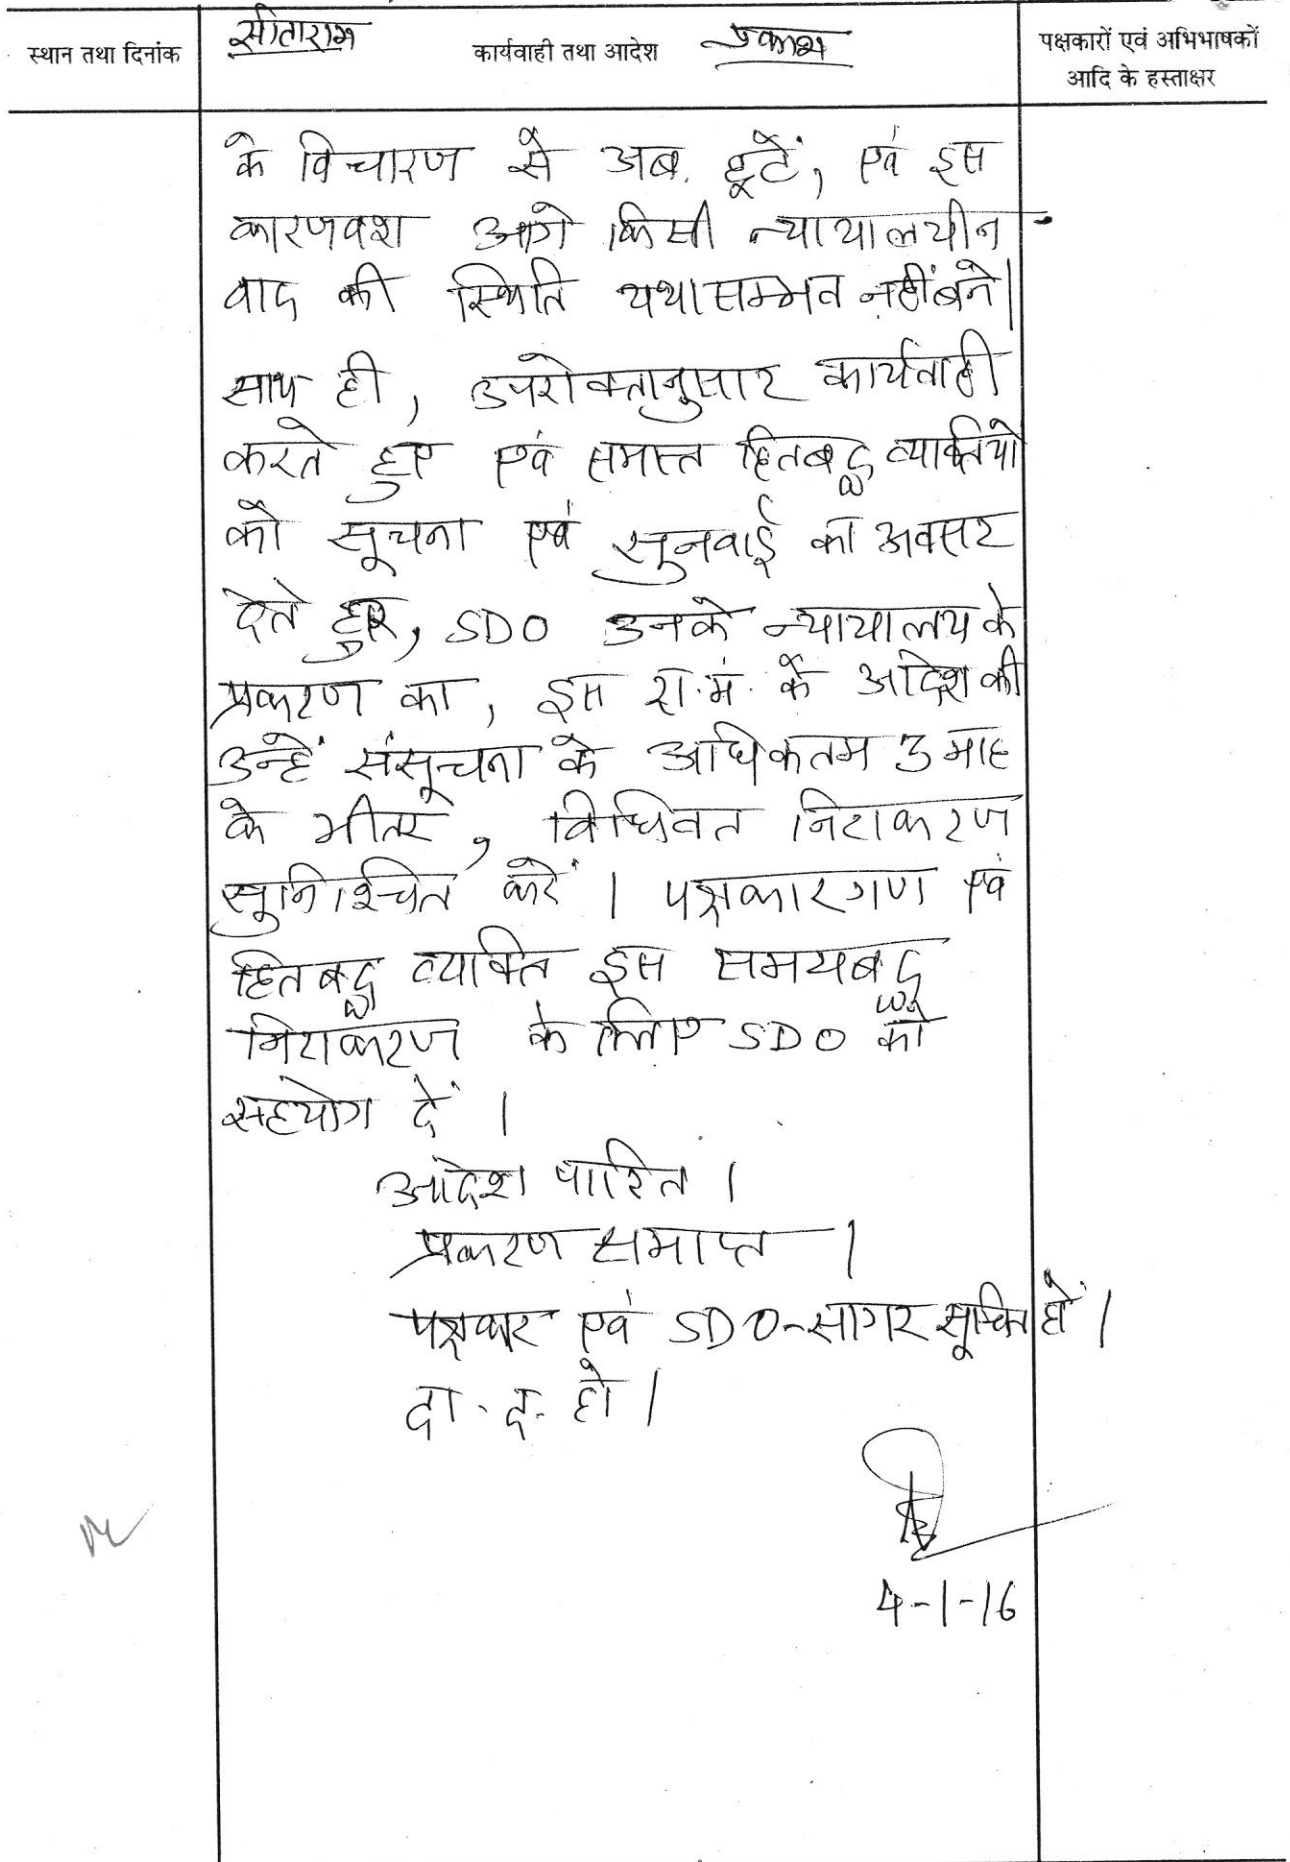 स्थान तथा दिनांक
सीताराम कार्यवाही तथा आदेश प्रकाश
पक्षकारों एवं अभिभाषकों
आदि के हस्ताक्षर
के विचारण से अब छूटें, एवं इस
कारणवश आगे किसी न्यायालयीन
वाद की स्थिति यथासम्भव नहीं बने।
साथ ही, उपरोक्तानुसार कार्यवाही
करते हुए एवं समस्त हितबद्ध व्यक्तियों
को सूचना एवं सुनवाई का अवसर
देते हुए, SDO उनके न्यायालय के
प्रकरण का, इस रा.मं. के आदेश की
उन्हें संसूचना के अधिकतम 3 माह
के भीतर, विधिवत निराकरण
सुनिश्चित करें। पक्षकारगण एवं
हितबद्ध व्यक्ति इस समयबद्ध
निराकरण के लिए SDO को
सहयोग दें।
आदेश पारित।
प्रकरण समाप्त।
पक्षकार एवं SDO-सागर सूचित हों।
दा. द. हो।
4-1-16